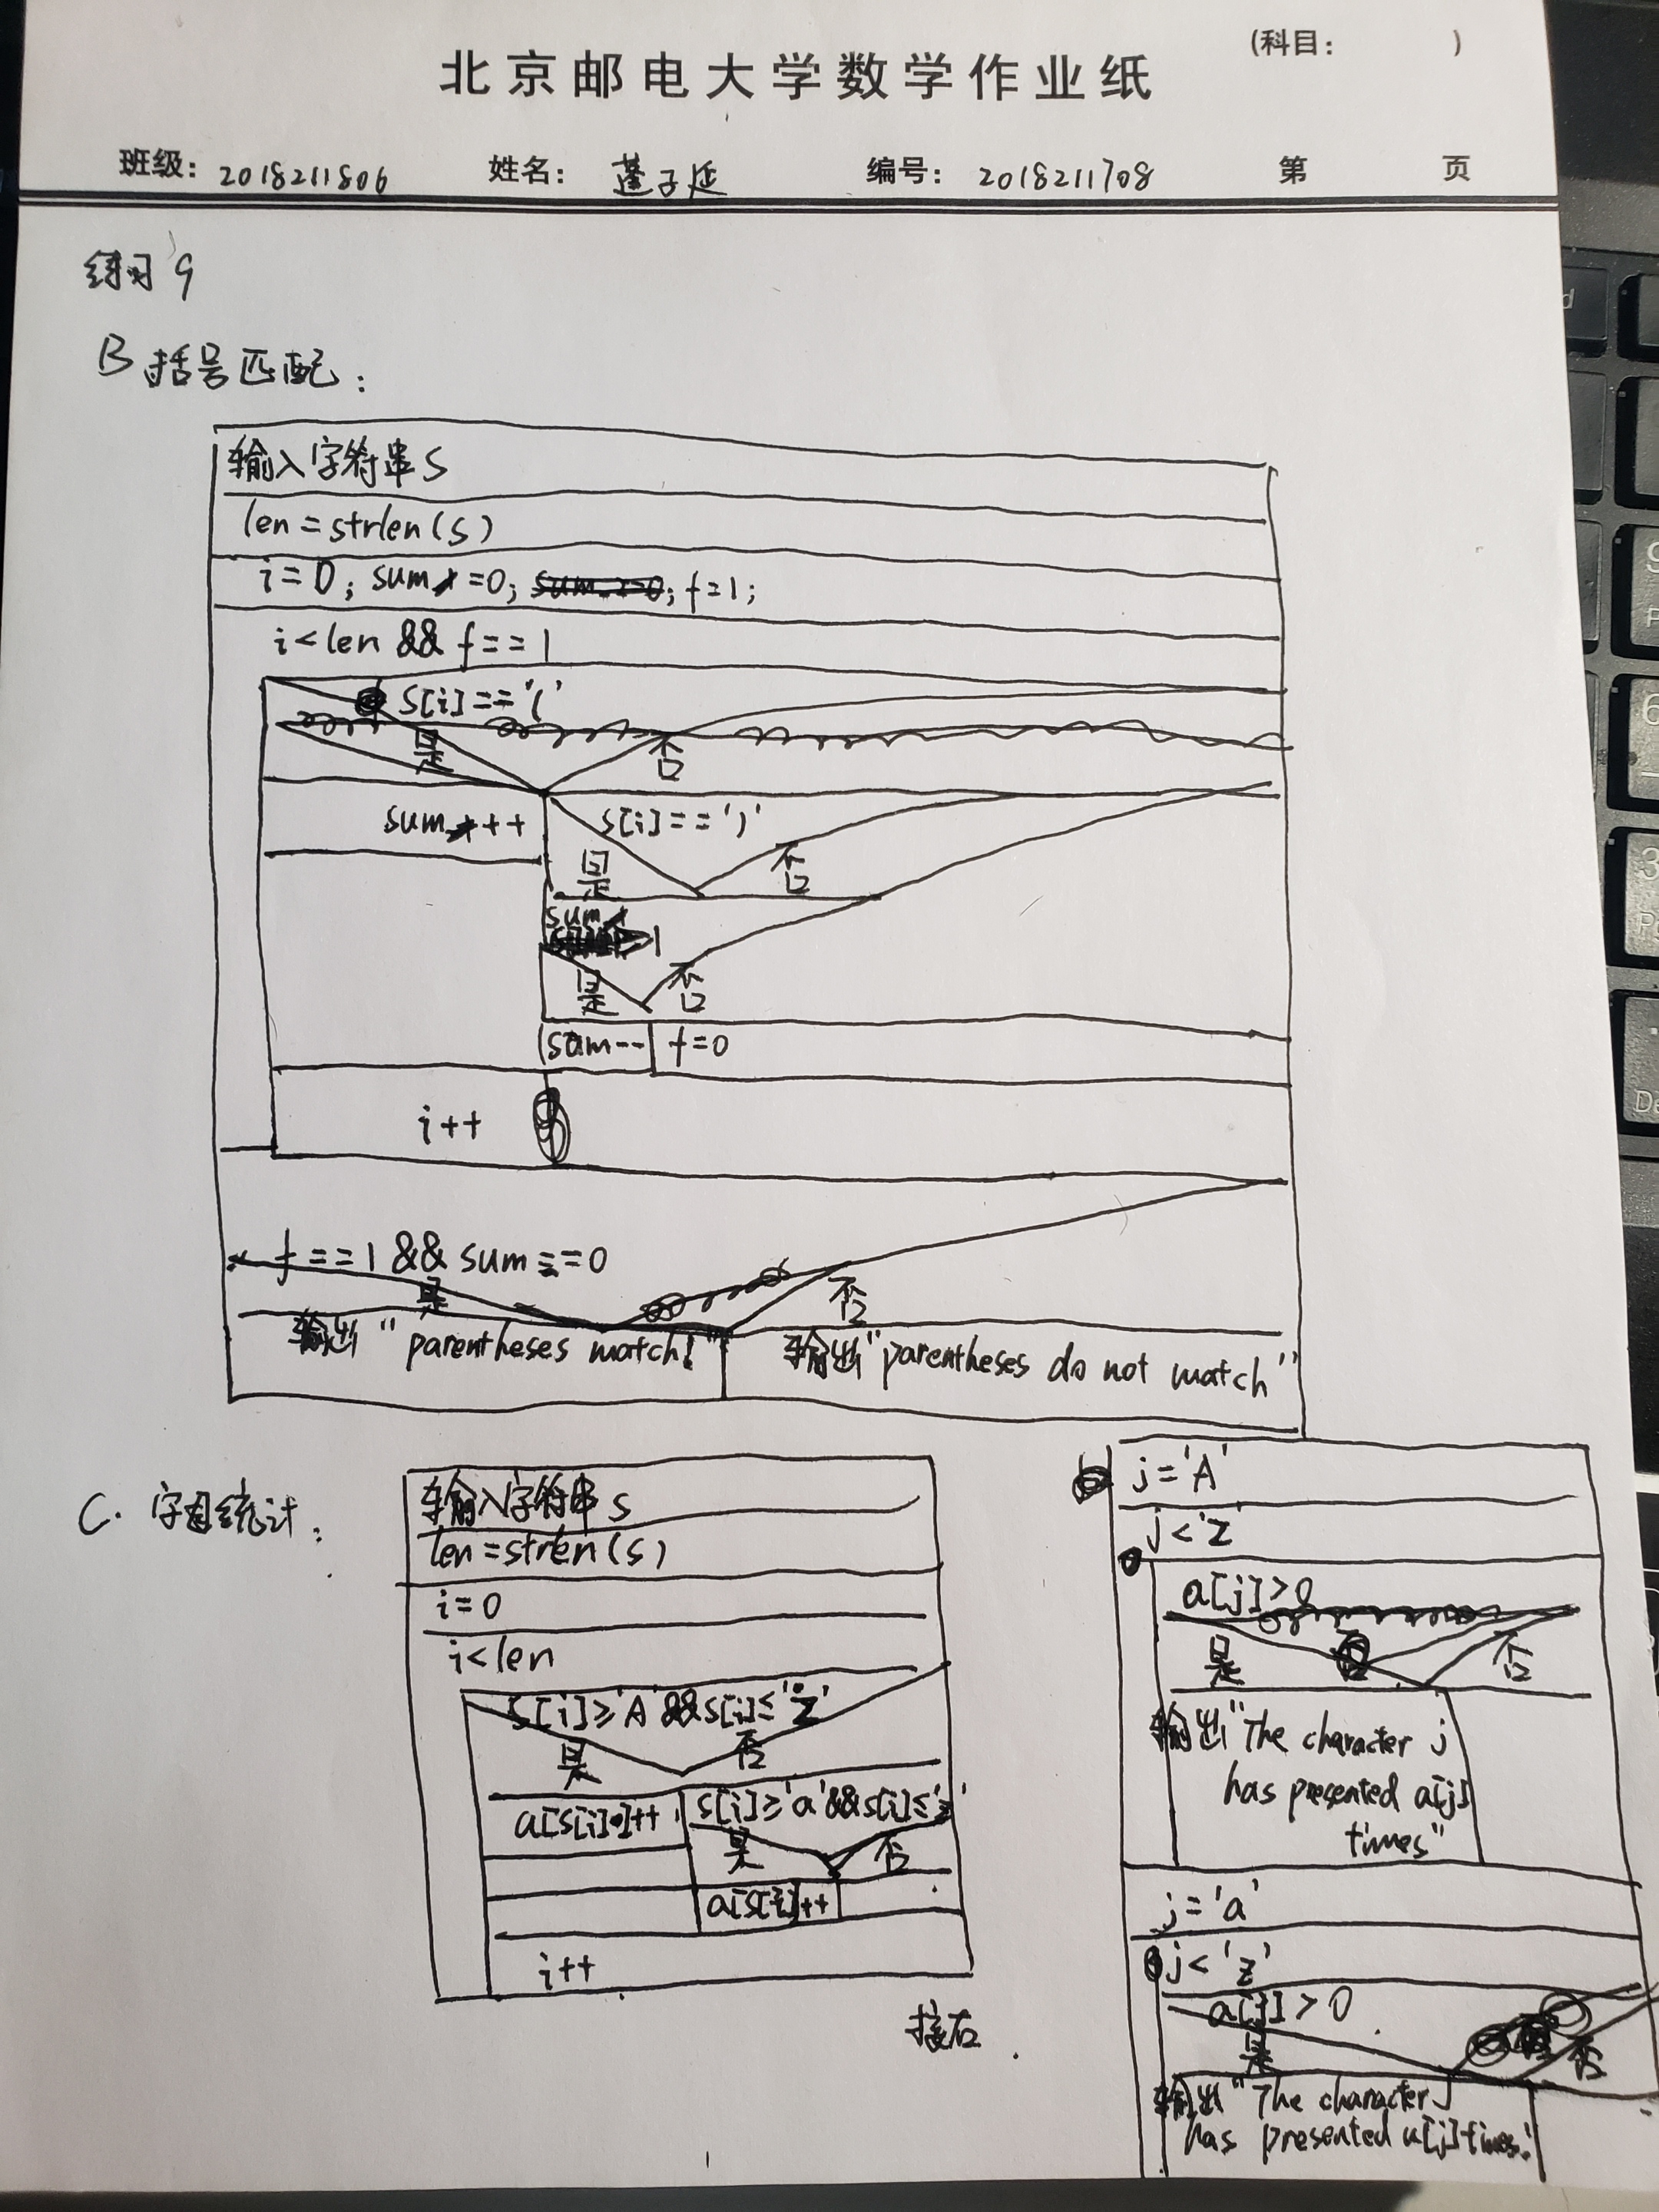 (科目: )
北京邮电大学数学作业纸
班级: 2018211806 姓名: 蓬子延 编号: 2018211708 第 页
练习9
B 括号匹配:
输入字符串s
len=strlen(s)
i=0; sum=0; f=1;
i<len && f==1
s[i]=='('
是 否
sum++
s[i]==')'
是 否
sum
是 否
sum-- f=0
i++
f==1 && sum==0
是 否
输出"parentheses match!" 输出"parentheses do not match"
C. 字母统计:
输入字符串s
len=strlen(s)
i=0
i<len
s[i]≥'A'&&s[i]≤'Z'
是 否
a[s[i]]++ s[i]≥'a'&&s[i]≤'z'
是 否
a[s[i]]++
i++
接右
j='A'
j<'Z'
a[j]>0
是 否
输出"The character j
has presented a[j]
times"
j='a'
j<'z'
a[j]>0
是 否
输出"The character j
has presented a[j] times!